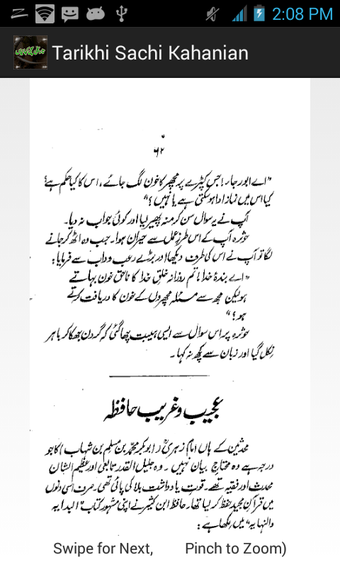 2:08 PM
Tarikhi Sachi Kahanian
۶۲
"اے ابو رجاء! جس کپڑے پر مچھر کا خون لگ جائے، اس کا کیا حکم ہے؟
کیا اس میں نماز ادا ہو سکتی ہے یا نہیں؟"
آپ نے یہ سوال سن کر منہ پھیر لیا اور کوئی جواب نہ دیا۔
سؤرہ آپ کے اس طرزِ عمل سے حیران ہوا۔ جب وہ اٹھ کر جانے
لگا تو آپ نے اس کی طرف دیکھا اور بڑے رعب و داب سے فرمایا:
"اے بندۂ خدا! تم روزانہ خلقِ خدا کا ناحق خون بہاتے
ہو لیکن مجھ سے مسئلہ مچھروں کے خون کا دریافت کرتے
ہو؟"
سؤرہ پر اس سوال سے ایسی ہیبت چھا گئی کہ گردن جھکا کر باہر
نکل گیا اور زبان سے کچھ نہ کہا۔
عجیب و غریب حافظہ
محدثین کے ہاں امام زہری (ابوبکر محمد بن مسلم بن شہاب) کا جو
درجہ ہے وہ محتاجِ بیان نہیں۔ وہ جلیل القدر تابعی اور عظیم الشان
محدث اور فقیہ تھے۔ قوتِ یادداشت بلا کی پائی تھی۔ صرف اسی دنوں
میں قرآن مجید حفظ کر لیا تھا۔ حافظ ابن کثیر نے اپنی مشہور کتاب "البدایہ
والنہایہ" میں لکھا ہے:
Swipe for Next, Pinch to Zoom)